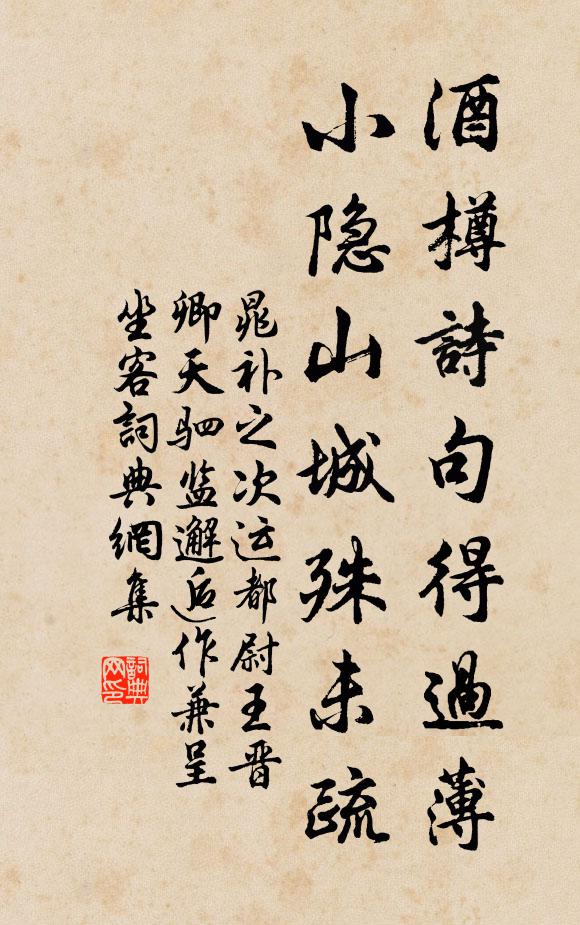 酒樽詩句得過薄
小隐山城殊未疏
晁补之次运都尉王晋
卿天驷监邂逅作兼呈
坐客詞典網集
詞典网印